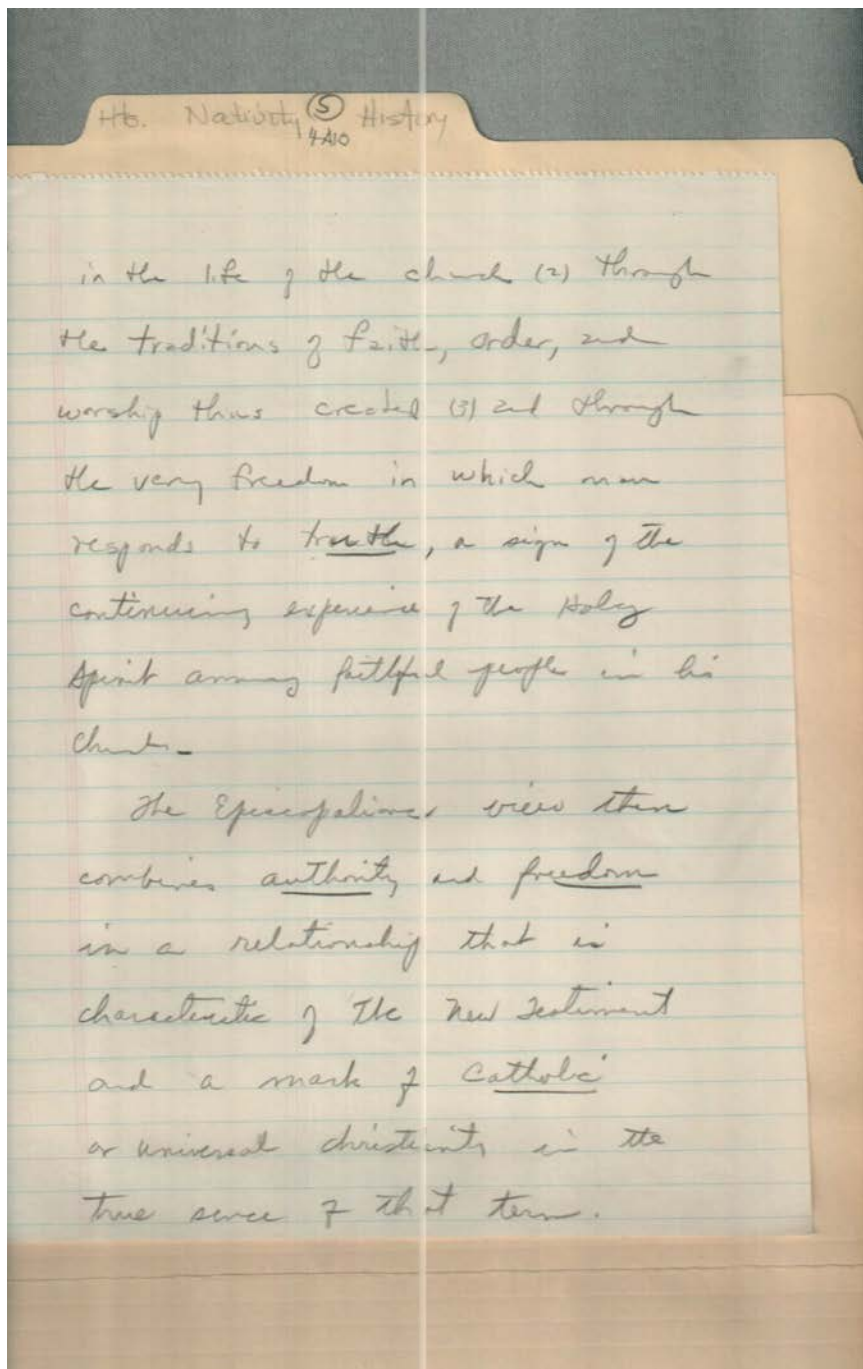 Hb. Nativity (5) History
4A10
in the life of the church (2) through
the traditions of faith, order, and
worship thus created (3) and through
the very freedom in which man
responds to truth, a sign of the
continuing experience of the Holy
Spirit among faithful people in his
Church.
The Episcopalians view then
combines authority and freedom
in a relationship that is
characteristic of the New Testiment
and a mark of Catholic
or universal christianity in the
true sence of that term.